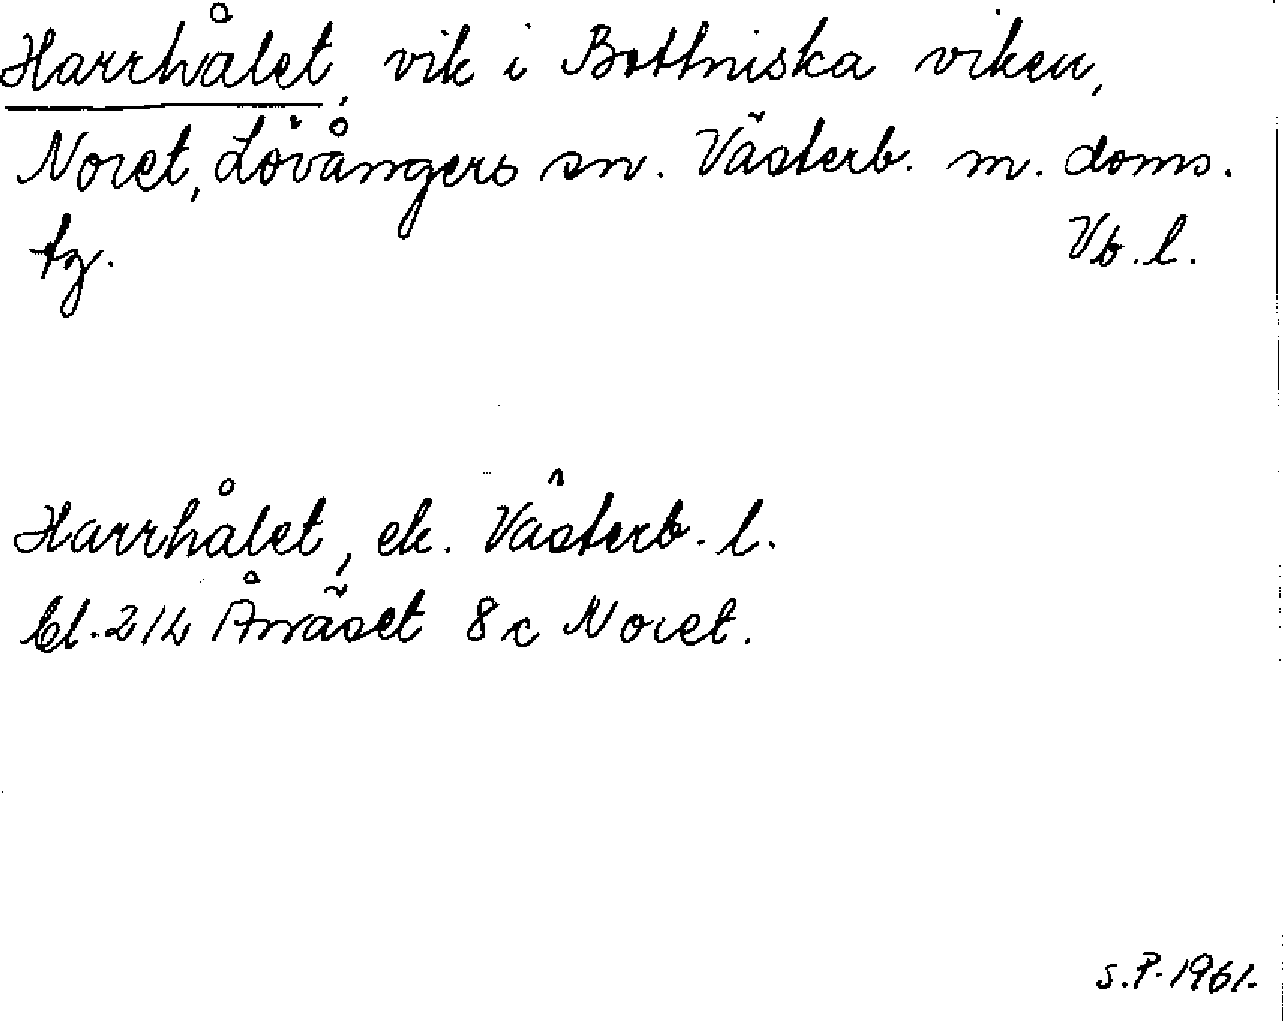 Harrhålet, vik i Bottniska viken,
Noret, Lövångers sn. Västerb. m. doms.
tg. Vb. l.
Harrhålet, ek. Västerb. l.
bl. 21L Ånäset 8c Noret.
S.P. 1961.